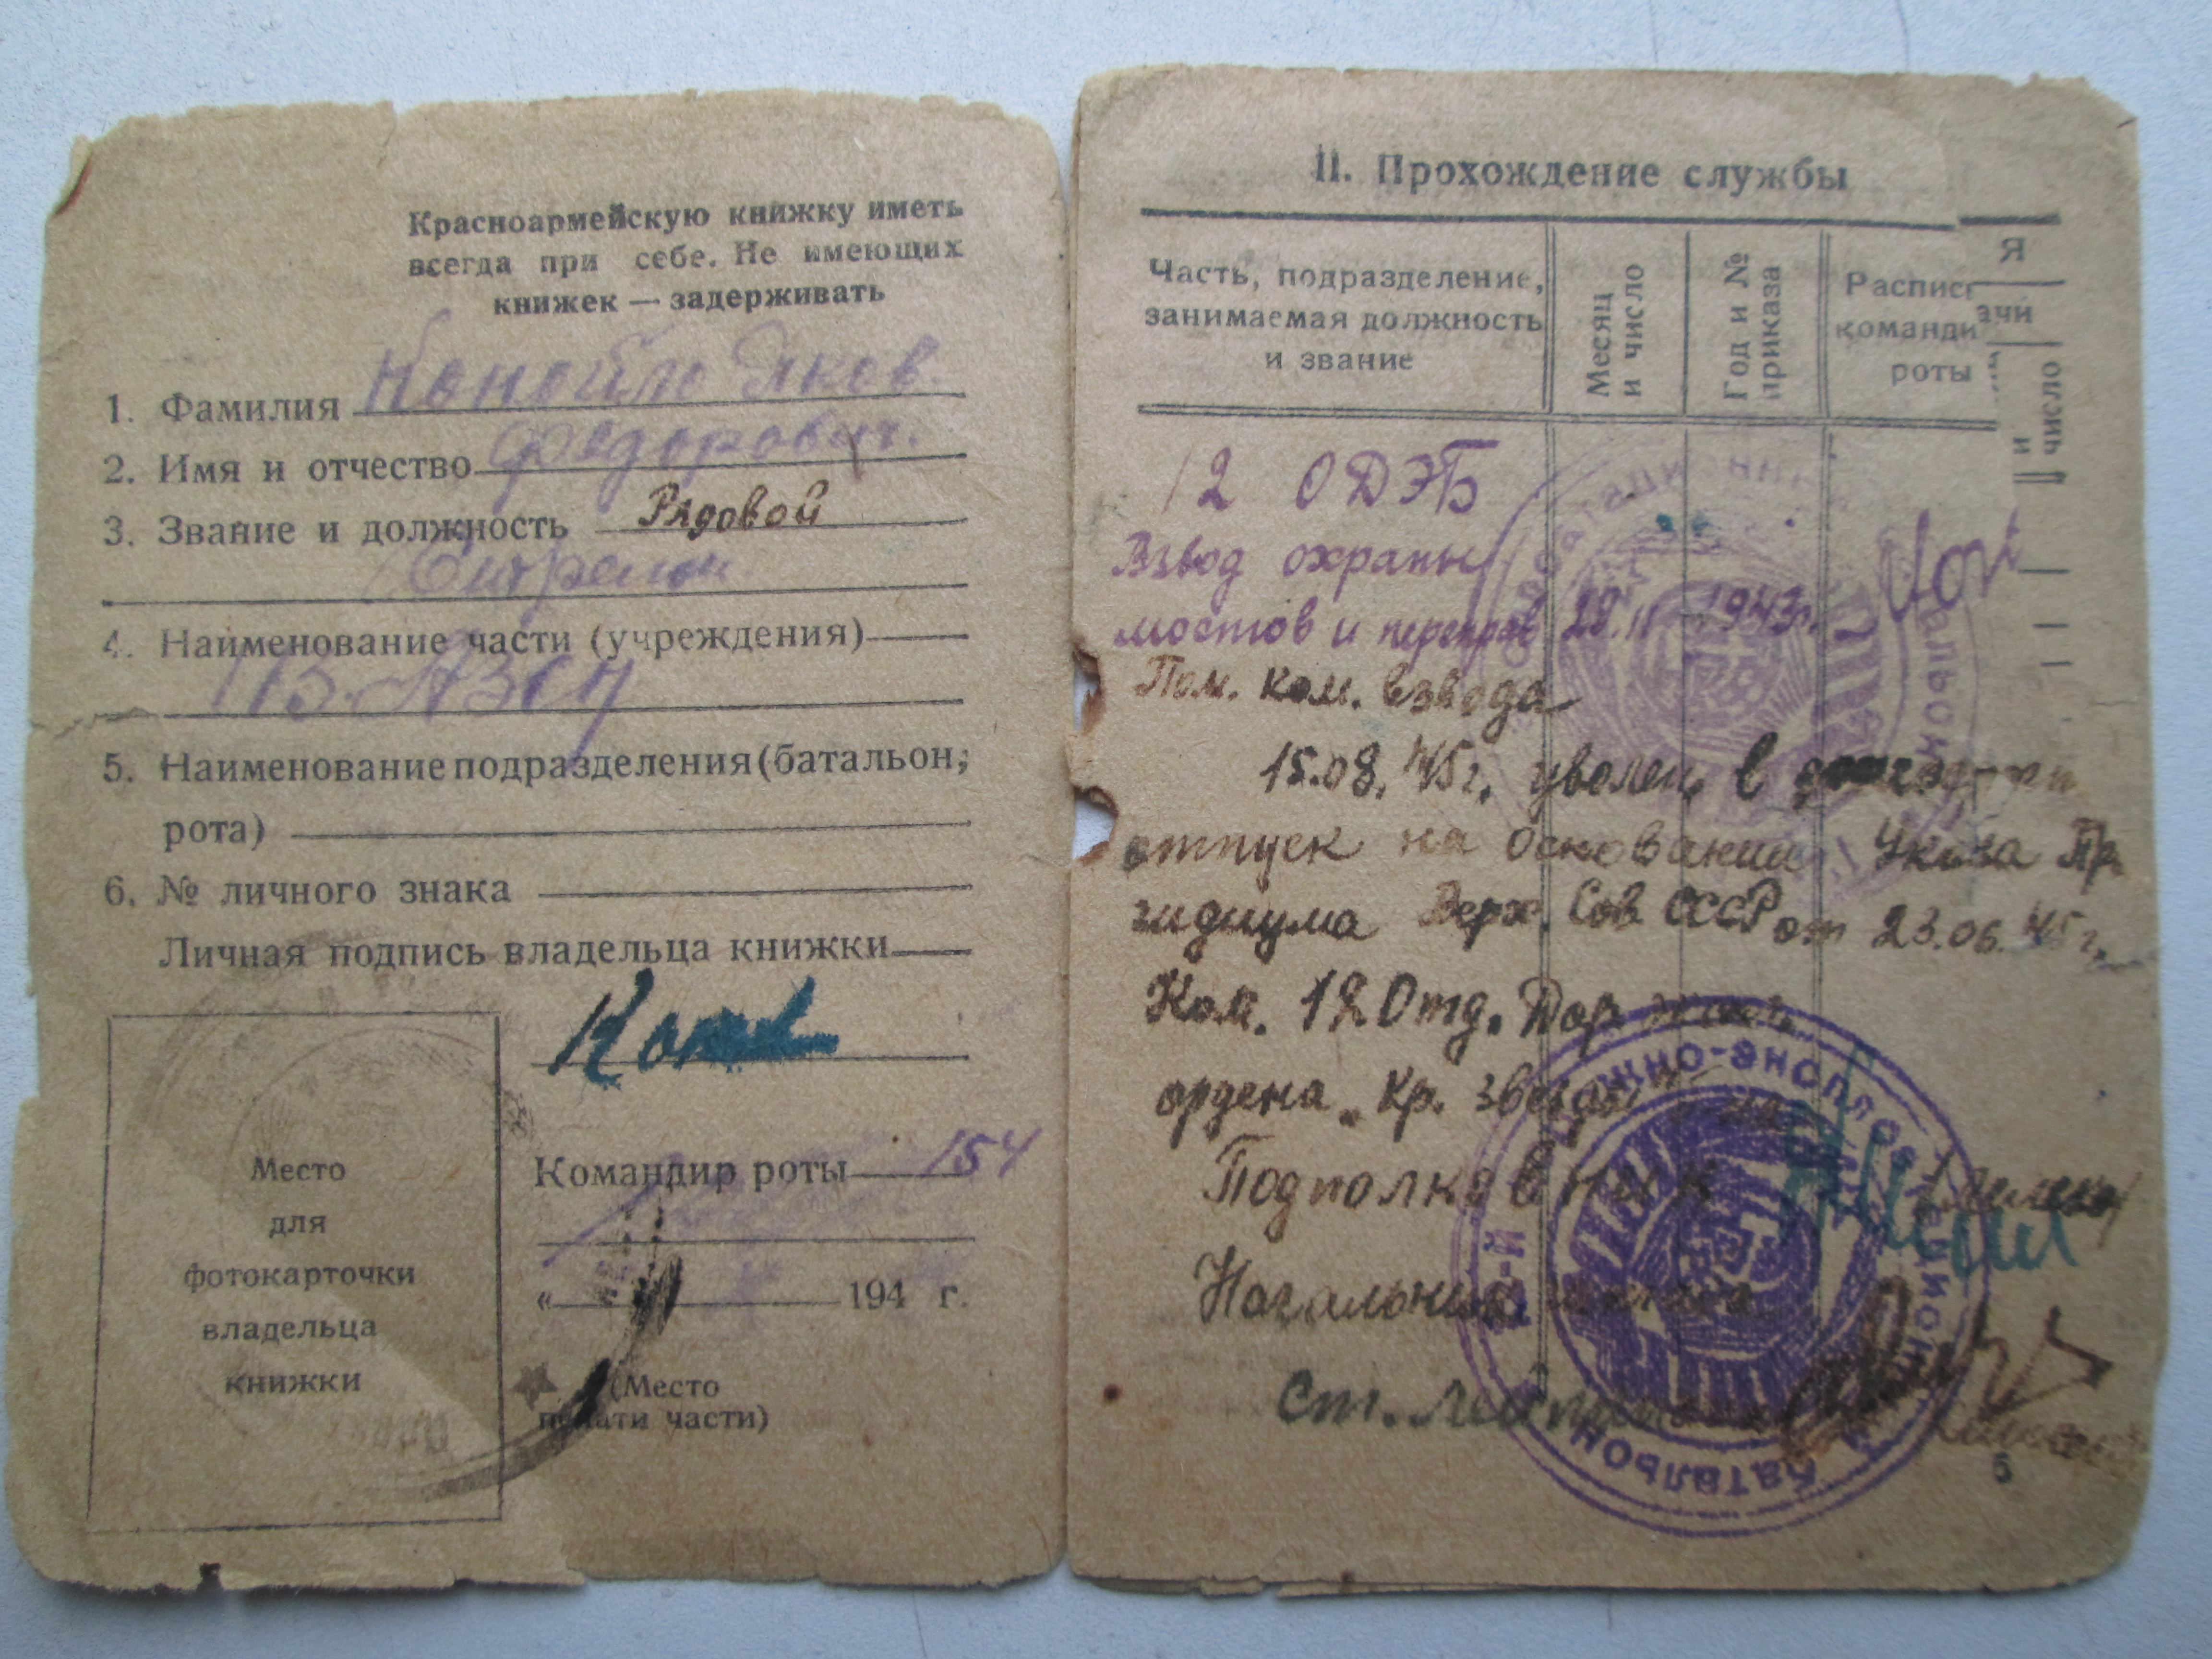 Красноармейскую книжку иметь
всегда при себе. Не имеющих
книжек — задерживать
1. Фамилия Яков
2. Имя и отчество Федорович.
3. Звание и должность Рядовой
4. Наименование части (учреждения)
5. Наименование подразделения (батальон,
рота)
6. № личного знака
Личная подпись владельца книжки
Место
для
фотокарточки
владельца
книжки
Командир роты 154
« 194 г.
(Место
печати части)
II. Прохождение службы
Часть, подразделение,
занимаемая должность
и звание
Месяц
и число
Год и №
приказа
Распис
команди
роты
Я
ачи
и
число
12 ОДЭБ
Взвод охраны
мостов и переправ 1943г.
Пом. ком. взвода
15.08.45г. уволен в
отпуск на основании Указа Пр
зидиума Верх. Сов СССР от 23.06.45г.
Ком. 12 Отд. Дор
ордена „Кр. звезды"
Подполковник
Начальник штаба
Ст. лейтенант
дорожно-эксплоатационный
батальон
6